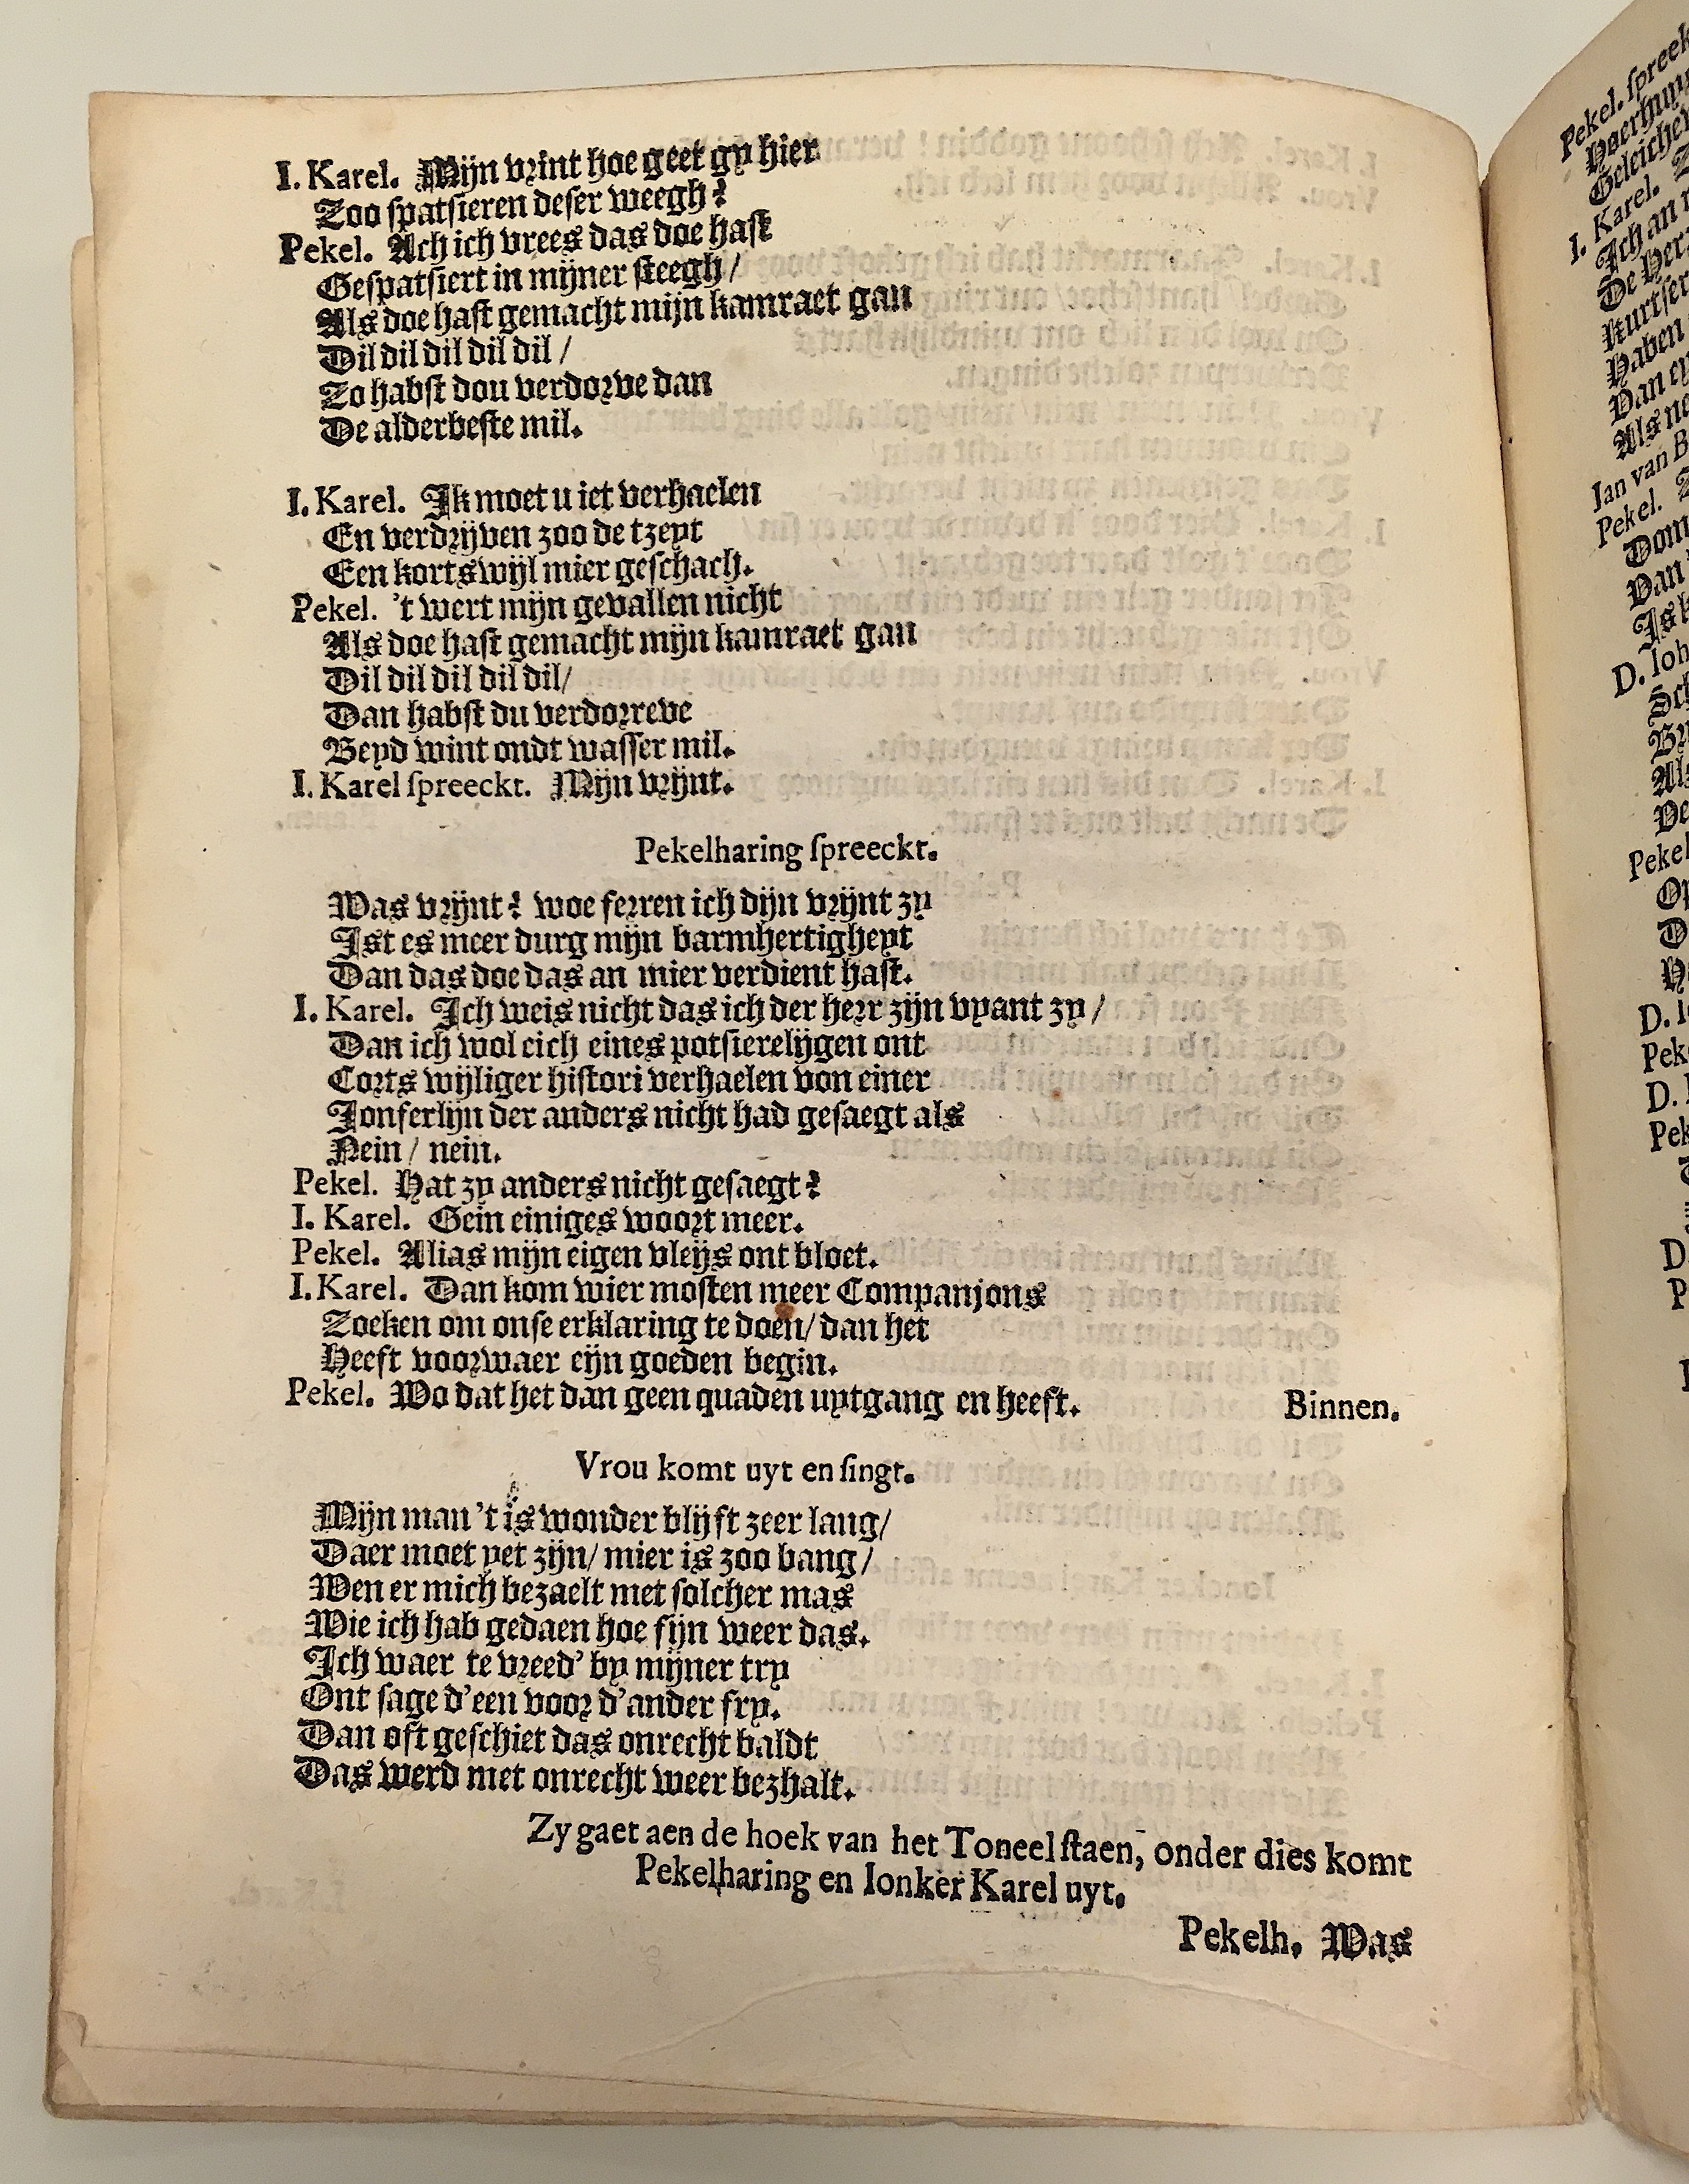 I. Karel. Mijn vrint hoe geet gy hier
Zoo spatsieren deser weegh?
Pekel. Ach ich vrees das doe hast
Gespatsiert in mijner steegh /
Als doe hast gemacht mijn kamraet gan
Dil dil dil dil dil /
Zo habst dou verdorve dan
De alderbeste mil.
I. Karel. Ik moet u iet verhaelen
En verdrijven zoo de tzeyt
Een kortswijl mier geschach.
Pekel. 't wert mijn gevallen nicht
Als doe hast gemacht mijn kamraet gan
Dil dil dil dil dil/
Dan habst du verdorreve
Beyd wint ondt wasser mil.
I. Karel spreeckt. Mijn vrijnt.
Pekelharing spreeckt.
Was vrijnt? woe ferren ich dijn vrijnt zy
Ist es meer durg mijn barmhertigheyt
Dan das doe das an mier verdient hast.
I. Karel. Ich weis nicht das ich der herr zijn vyant zy /
Dan ich wol eich eines potsierelijgen ont
Corts wijliger histori verhaelen von einer
Jonferlijn der anders nicht had gesaegt als
Nein / nein.
Pekel. Hat zy anders nicht gesaegt?
I. Karel. Gein einiges woort meer.
Pekel. Alias mijn eigen vleijs ont bloet.
I. Karel. Dan kom wier mosten meer Companjons
Zoeken om onse erklaring te doen/ dan het
Heeft voorwaer eijn goeden begin.
Pekel. Wo dat het dan geen quaden uytgang en heeft. Binnen.
Vrou komt uyt en singt.
Mijn man 't is wonder blijft zeer lang/
Daer moet yet zijn/ mier is zoo bang/
Wen er mich bezaelt met solcher mas
Wie ich hab gedaen hoe fijn weer das.
Ich waer te vreed' by mijner try
Ont sage d'een voor d'ander fry.
Dan oft geschiet das onrecht baldt
Das werd met onrecht weer bezhalt.
Zy gaet aen de hoek van het Toneel staen, onder dies komt
Pekelharing en Ionker Karel uyt.
Pekelh. Was
Pekel. spreek
I. Karel.
Ich an
De Her
Haben
Dan
Als
Ian van B
Pekel.
Dom
Dan
D. Ioh
Als
Pekel
D.
Pek
D.
Pek
D
P